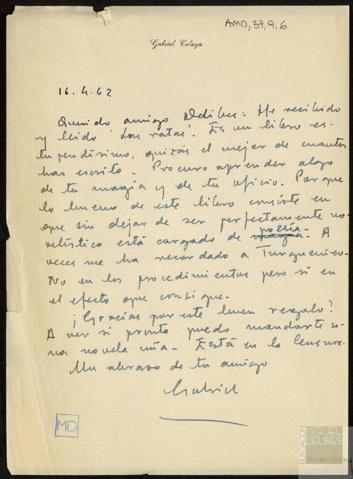 AMD, 37, 9, 6
Gabriel Celaya
16.4.62
Querido amigo Delibes: He recibido
y leido 'Las ratas'. Es un libro es-
tupendísimo, quizás el mejor de cuantos
has escrito. Procuro aprender algo
de tu magia y de tu oficio. Porque
lo bueno de este libro consiste en
que sin dejar de ser perfectamente no-
velístico está cargado de poesía. A
veces me ha recordado a Turgueniev.
No en los procedimientos pero sí en
el efecto que consigue.
¡Gracias por este buen regalo!
A ver si pronto puedo mandarte u-
na novela mía. Está en la Censura.
Un abrazo de tu amigo
Gabriel
MD
FUNDACIÓN
MIGUEL
DELIBES